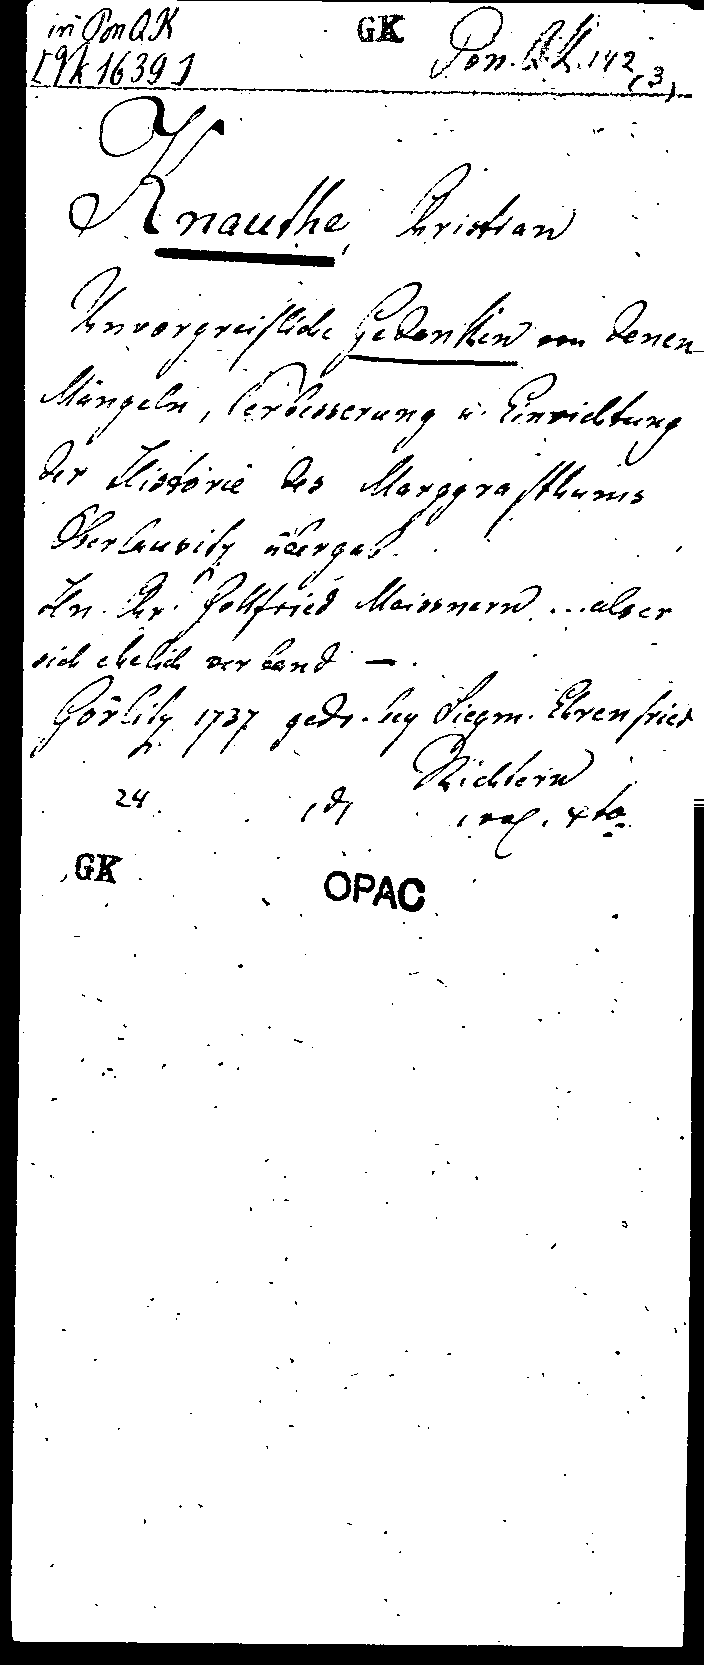 in Pon QK GK Pon. QK. 142
[QK 1639] (3)
Knauthe, Christian
Unvorgreifliche Gedanken von denen
Mängeln, Verbesserung u. Einrichtung
der Historie des Marggrafthums
Oberlausitz übergab
Hn. Chr. Gottfried Meissnern ... als er
sich ehelich verband —.
Görlitz 1737 gedr. bey Siegm. Ehrenfried
Richtern
24 4to
GK OPAC